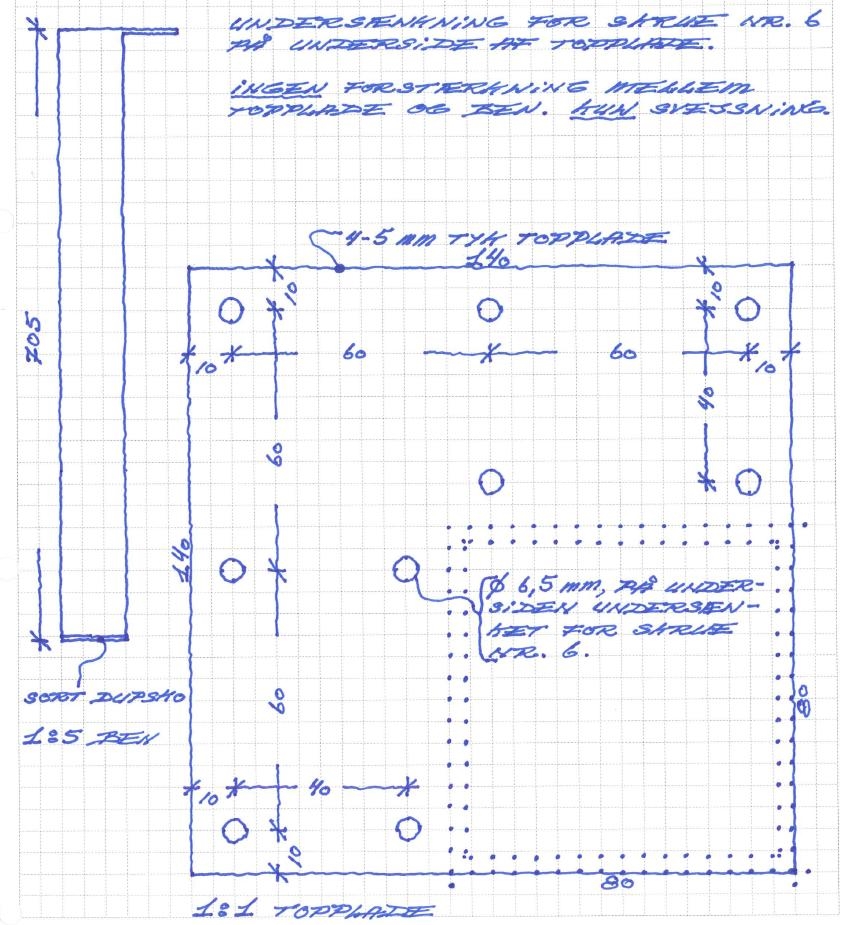 UNDERSÆNKNING FOR SKRUE NR. 6
PÅ UNDERSIDE AF TOPPLADE.
INGEN FORSTÆRKNING MELLEM
TOPPLADE OG BEN. KUN SVEJSNING.
4-5 mm TYK TOPPLADE
140
10
10
10
60
60
10
705
40
60
140
Ø 6,5 mm, PÅ UNDER-
SIDEN UNDERSÆN-
KET FOR SKRUE
NR. 6.
SORT DUPSKO
1:5 BEN
60
80
10
40
10
80
1:1 TOPPLADE